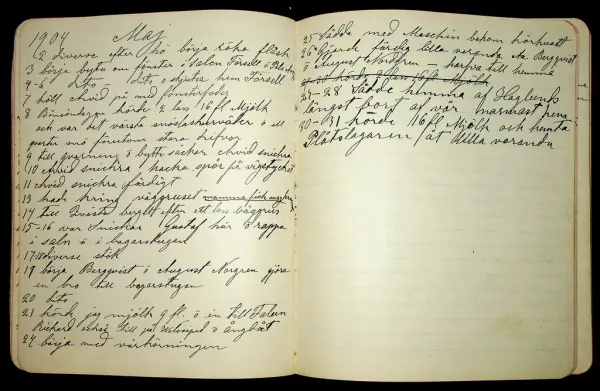 1904 Maj
2 Diverse efter hö börja röka flesk
3 börja byta om fönster i salen Försell o
4-6 dito dito o skjutsa hem Försell
7 höll Arvid på med
8 hörde 2 lass 16 fl Mjölk
och var det värsta snöslaskerväder o
qvar snö förutom stora drefvor
9 till qvarnen o bytte säckar Arvid snickra
10 Arvid snickra, hacka opp på vägstycket
11 Arvid snickra färdigt
13 hade kring väggruset
14 till efter ett lass väggrus
15-16 var Snickar Gustaf här o rappa
i saln o i bagarstugan
17-18 diverse stök
19 börja Bergqvist o August Norgren göra
en bro till bagarstugan
20 dito
21 hörde jag mjölk 9 fl. o in till Falun
Rickard också till på o ångbåt
24 börja med vårkörningen
25 Sådde med Maschin bakom hörhuset
26 gjorde färdig lilla veranda Bergqvist
o August Nordgren - harfva till hemma
27-28 Sådde hemma af Haglunds
längst bort af vår narmast
30-31 hörde 16 fl. Mjölk och hemta
Plåtslagaren åt lilla verandan